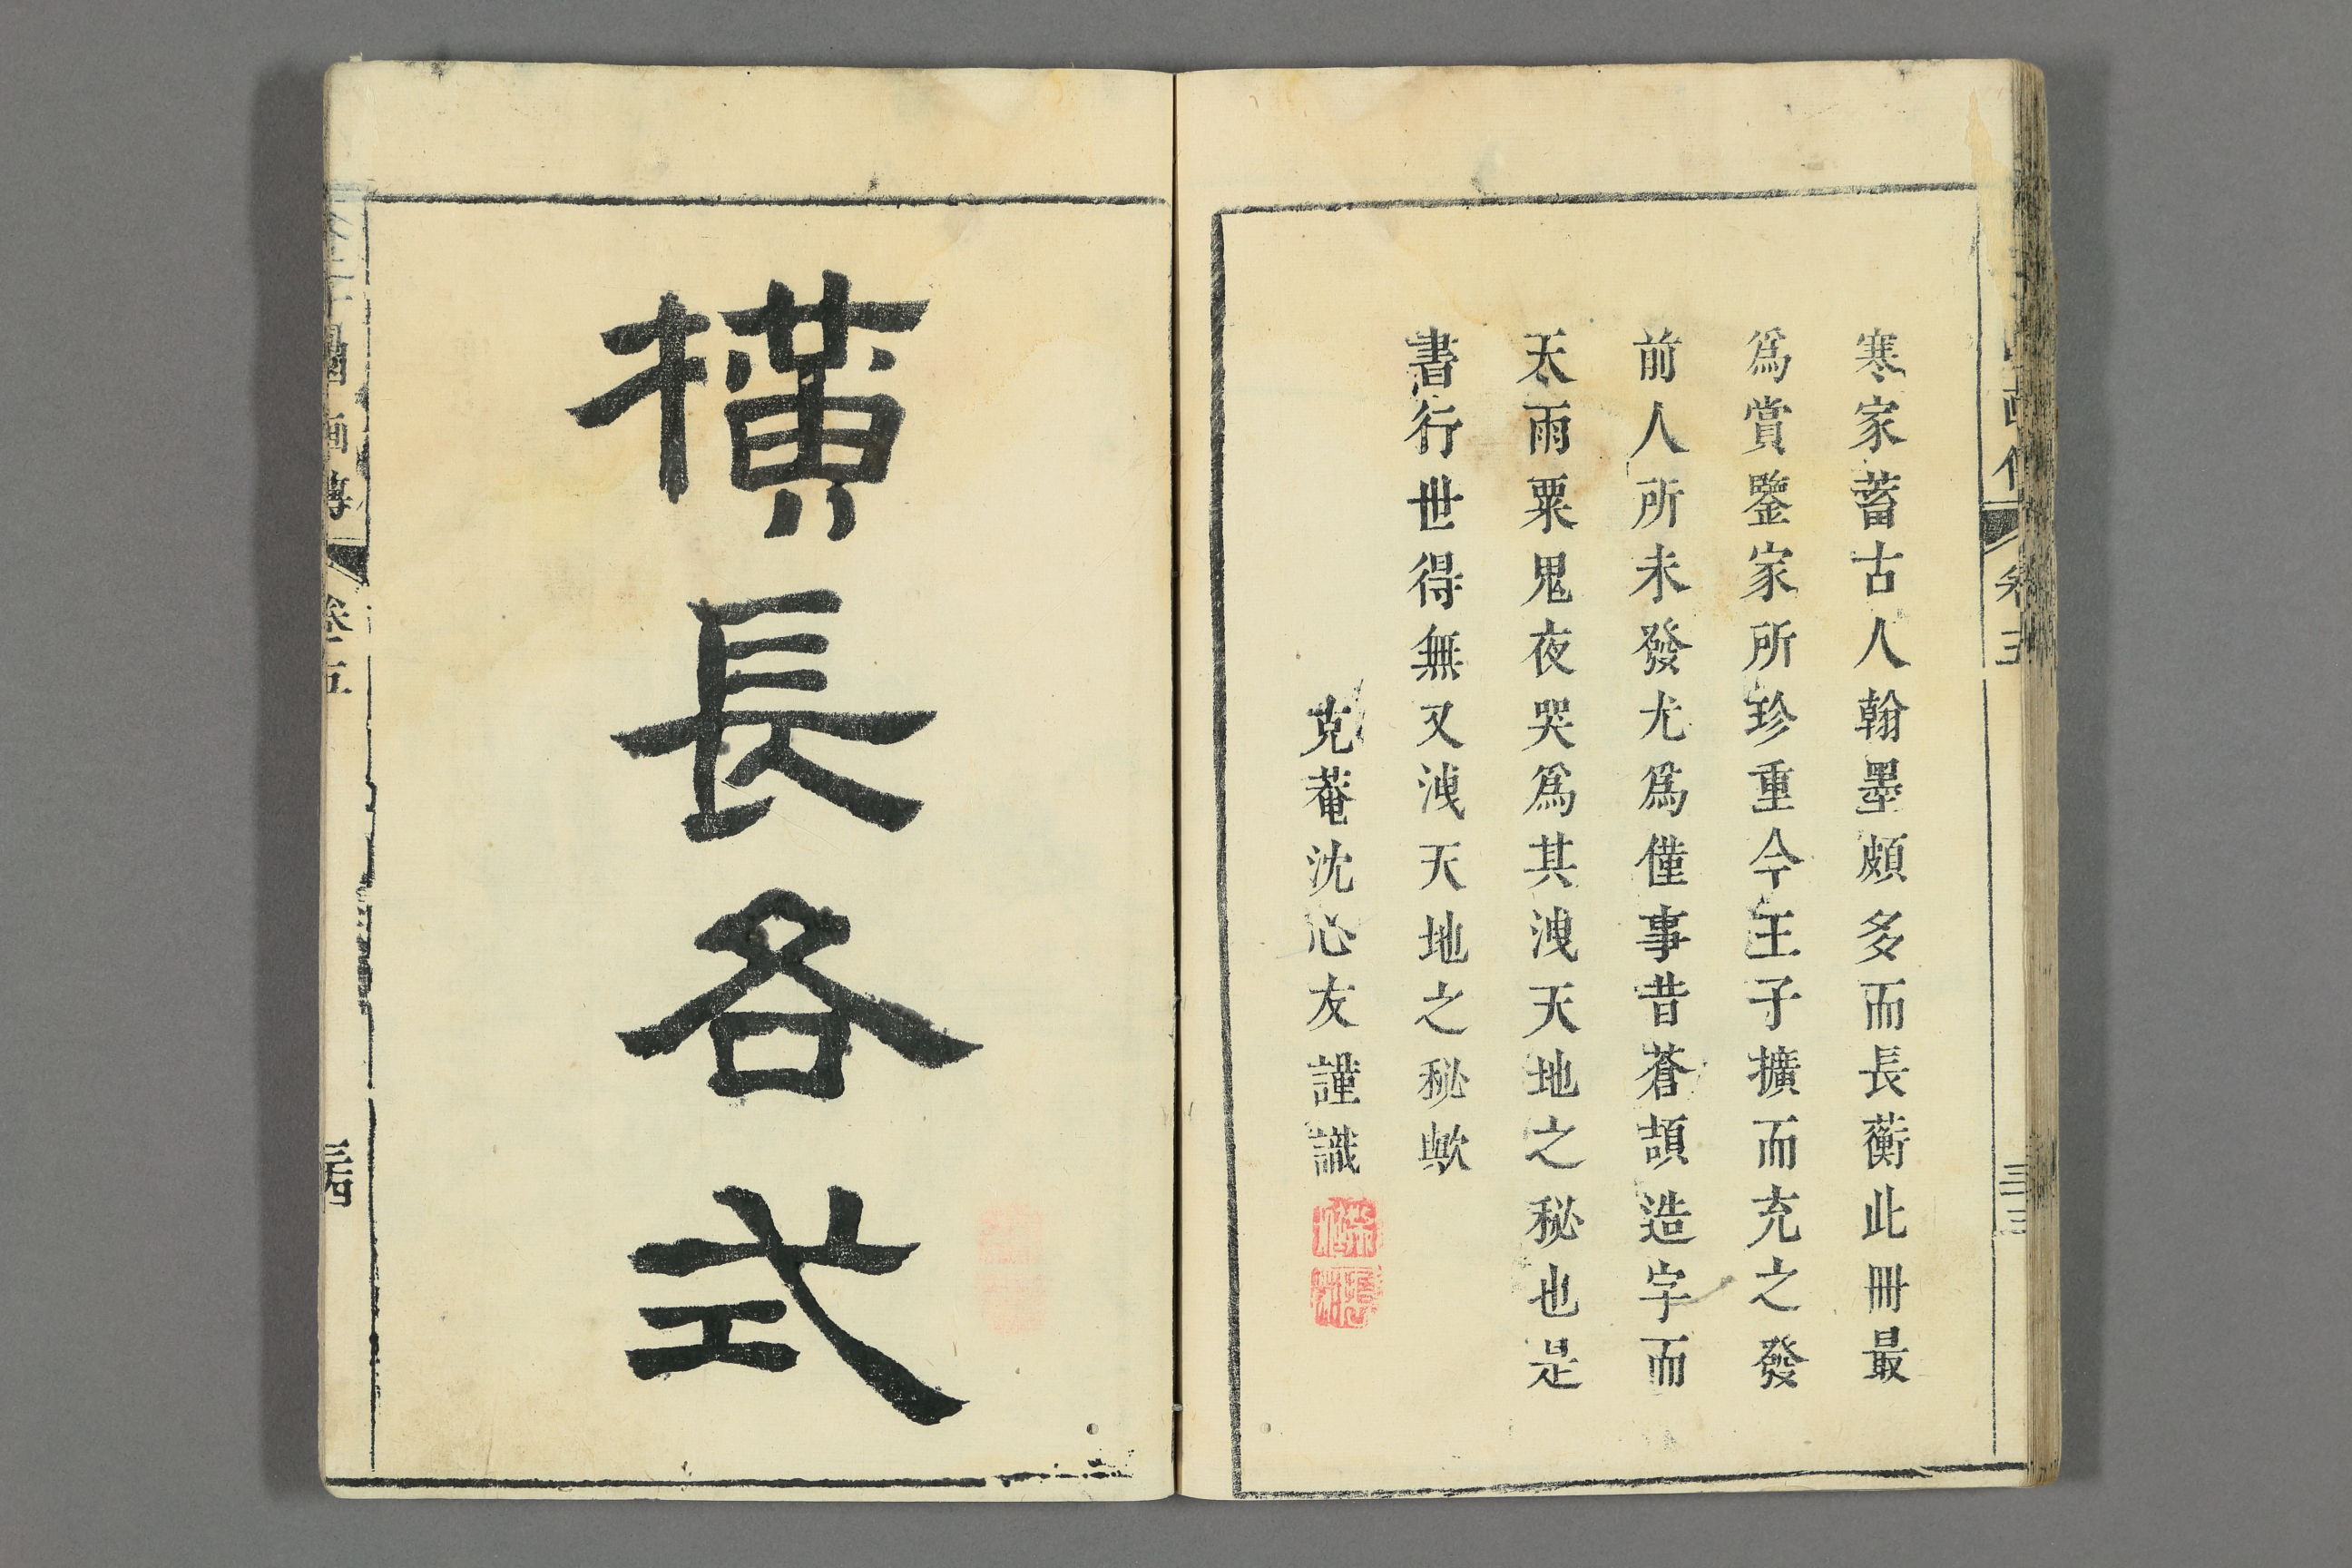 寒家蓄古人翰墨頗多而長蘅此冊最
爲賞鑒家所珍重今王子擴而充之發
前人所未發尤爲僅事昔蒼頡造字而
天雨粟鬼夜哭爲其洩天地之秘也是
書行世得無又洩天地之秘歟
克菴沈心友謹識
卷五
橫長各式
畫傳
卷五
三四